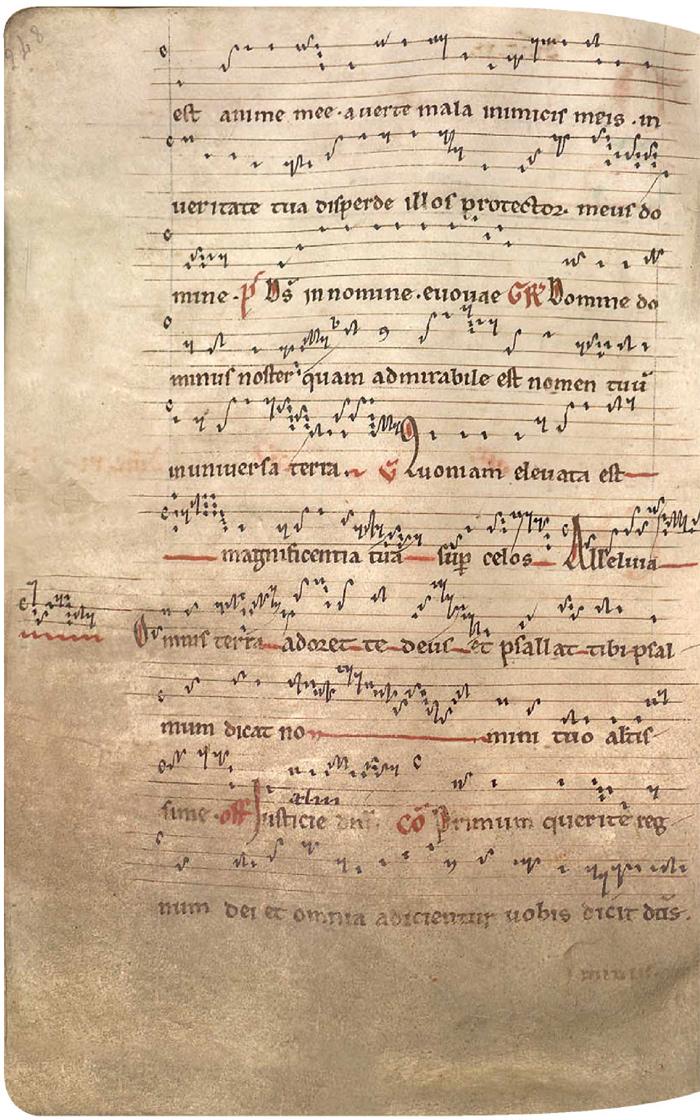 248
est anime mee · auerte mala inimicis meis · in
ueritate tua disperde illos protector meus do
mine · p̃s Ds̃ in nomine · euouae GR Domine do
minus noster quam admirabile est nomen tuũ
in uniuersa terra V Quoniam eleuata est
magnificentia tua sup̱ celos Alleluia
Omnis terra adoret te deus et psallat tibi psal
mum dicat no mini tuo altis
sime · off Iusticie dnĩ Cō Primum querite reg
num dei et omnia adicientur uobis dicit dñs ·